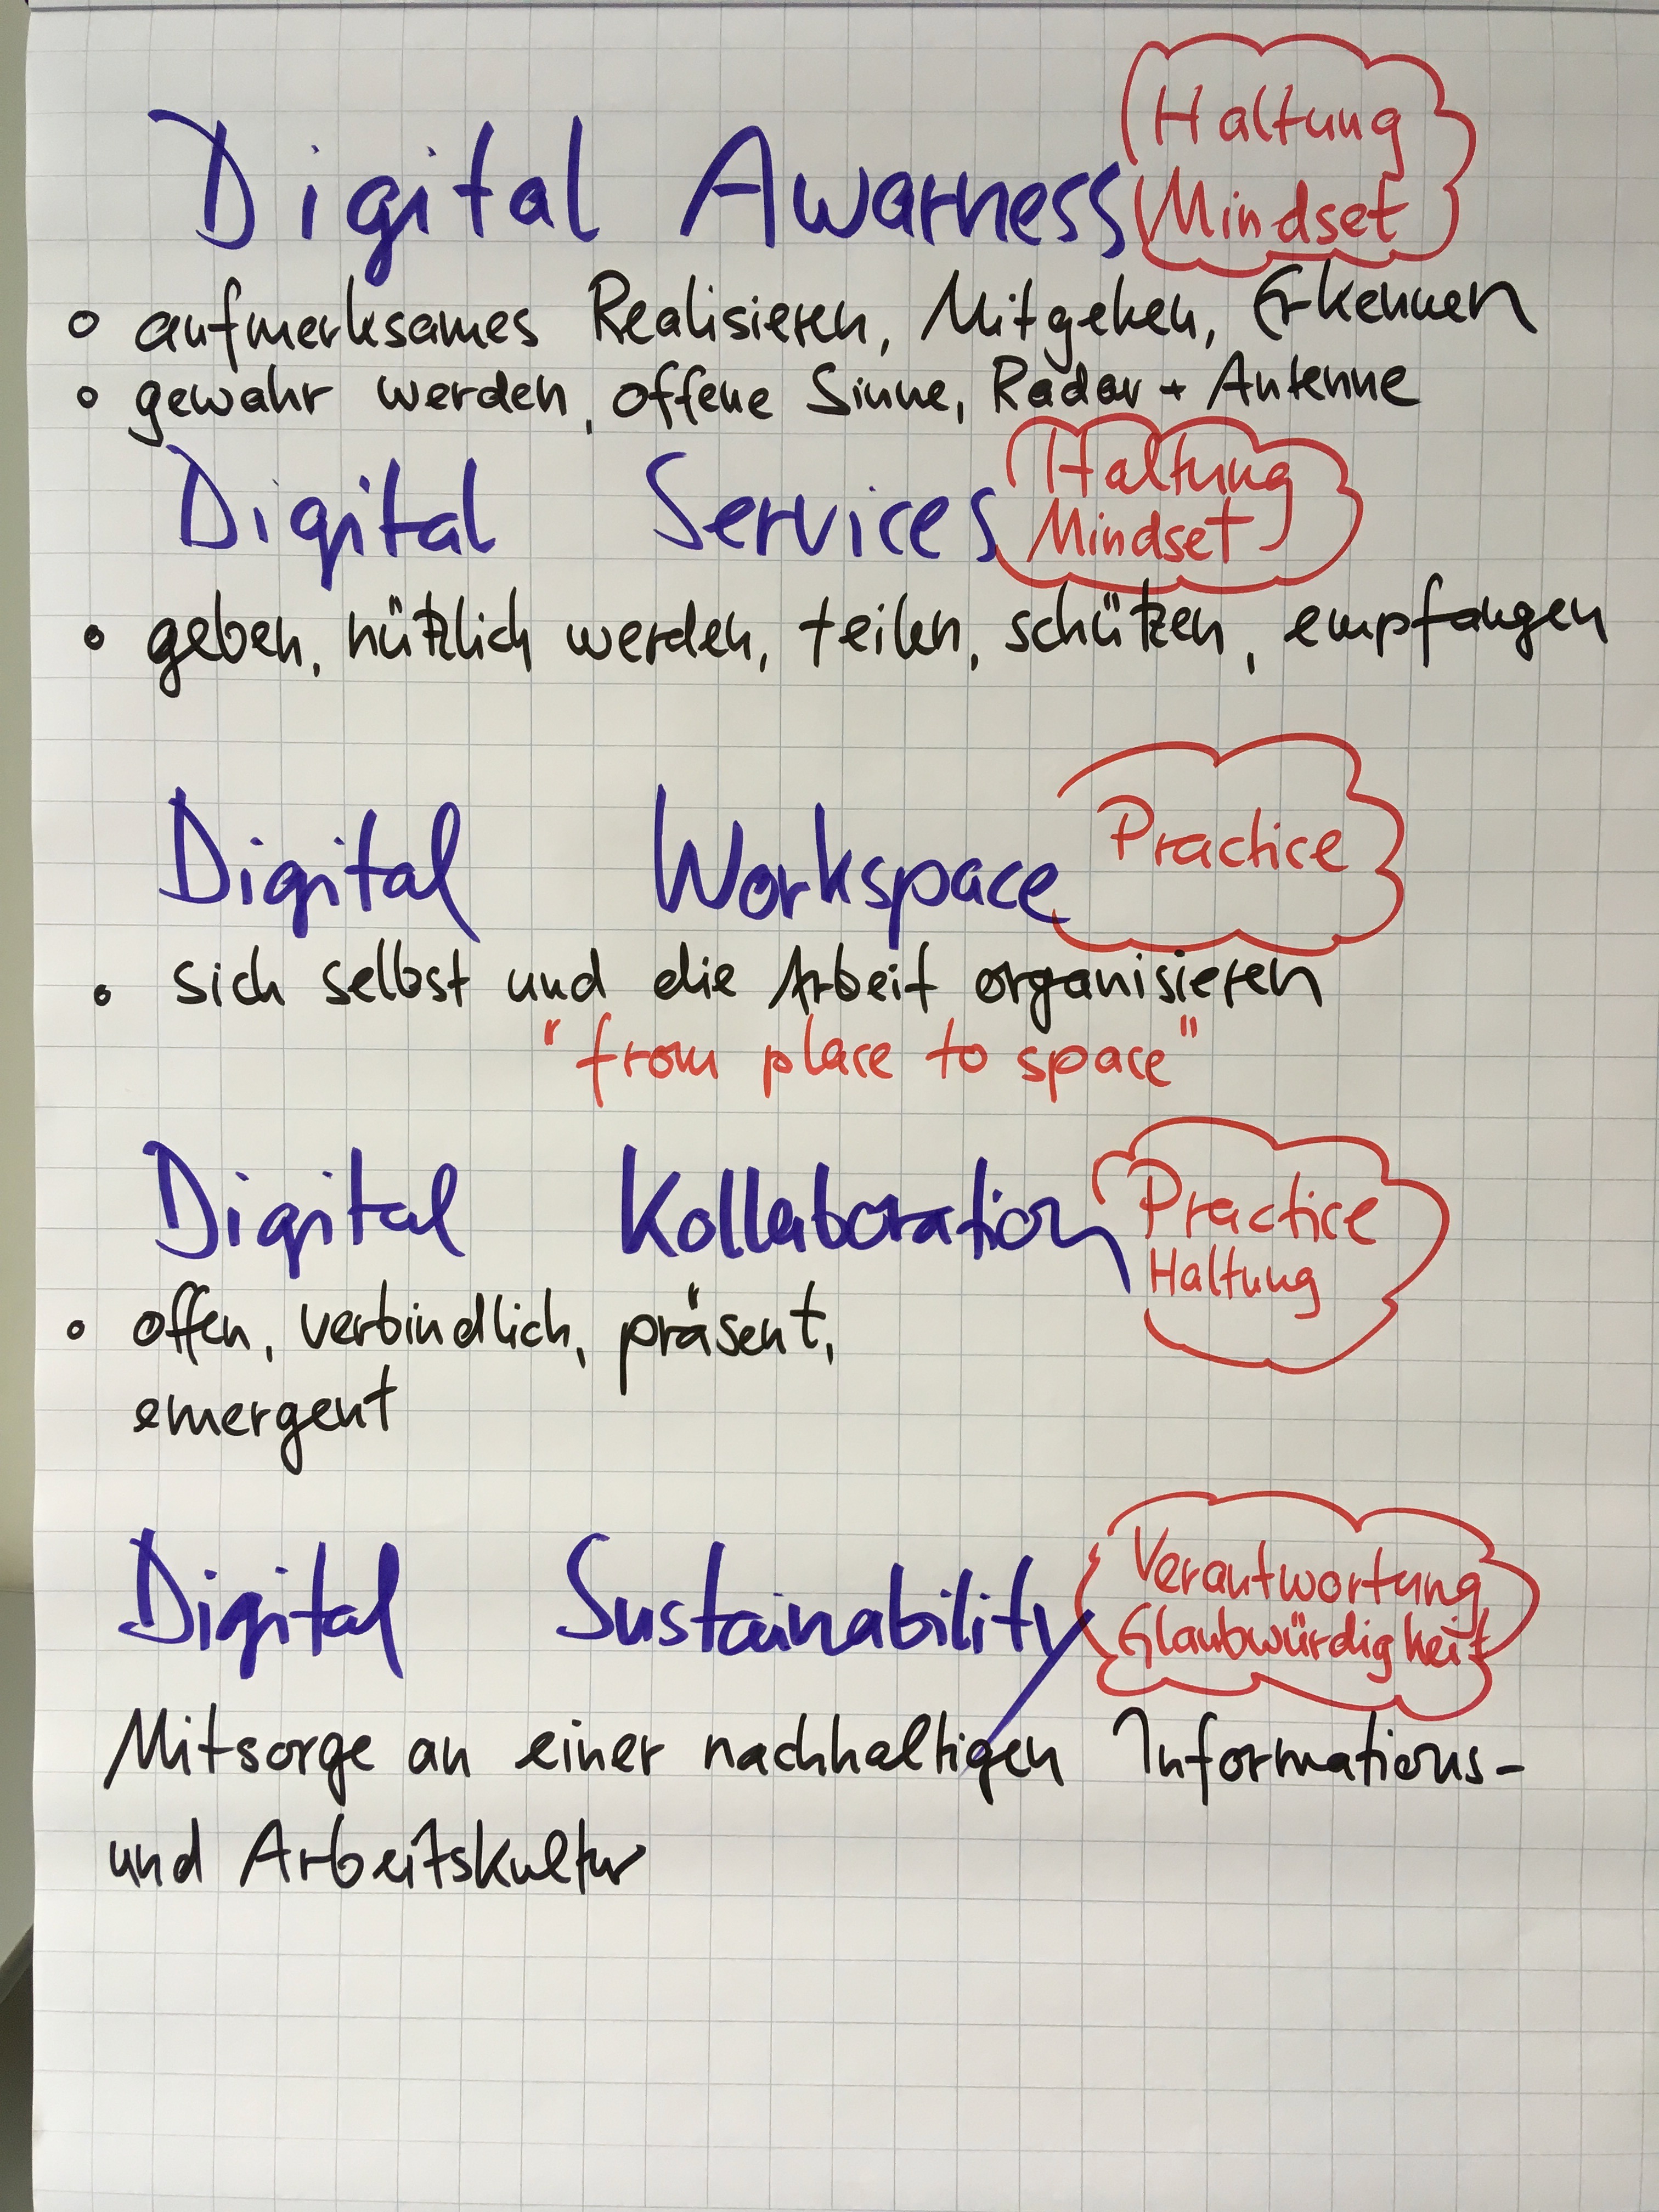 Haltung
Mindset
Digital Awarness
° aufmerksames Realisieren, Mitgehen, Erkennen
° gewahr werden, offene Sinne, Radar + Antenne
Haltung
Mindset
Digital Services
° geben, nützlich werden, teilen, schützen, empfangen
Practice
Digital Workspace
° sich selbst und die Arbeit organisieren
"from place to space"
Digital Kollaboration
Practice
Haltung
° offen, verbindlich, präsent,
emergent
Digital Sustainability
Verantwortung
Glaubwürdigkeit
Mitsorge an einer nachhaltigen Informations-
und Arbeitskultur